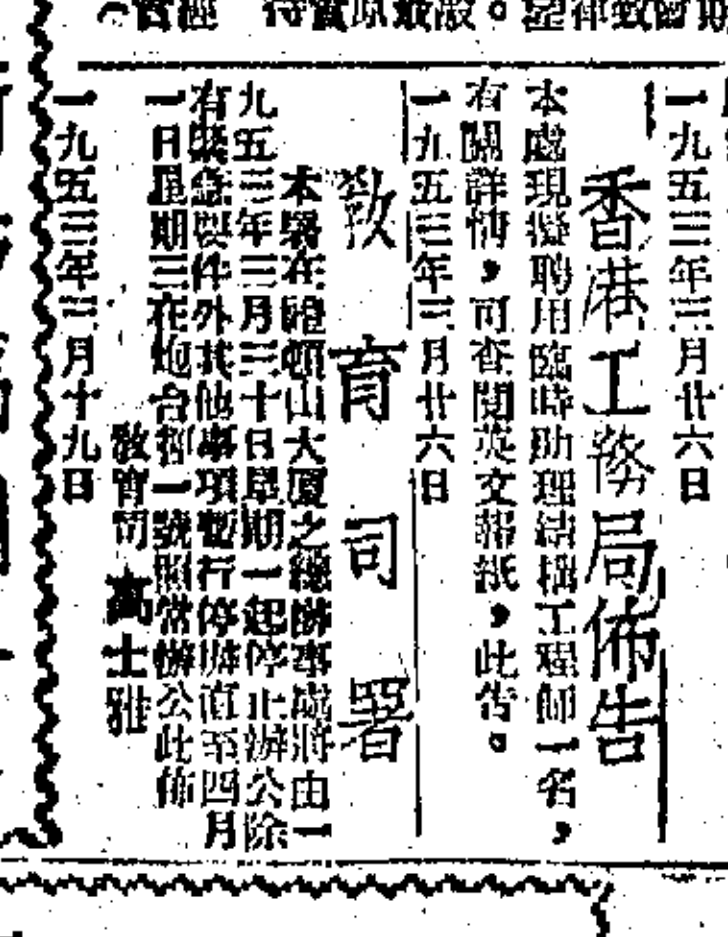 一九五三年三月廿六日
香港工務局佈告
本處現擬聘用臨時助理結構工程師一名，
有關詳情，可查閱英文報紙，此告。
一九五三年三月廿六日
教育司署
本署在鐵頓山大廈之總辦事處將由一
九五三年三月三十日星期一起停止辦公除
有緊急要件外其他事項暫行停辦直至四月
一日星期三在炮台裡一號照常辦公此佈
教育司 高士雅
一九五三年三月十九日